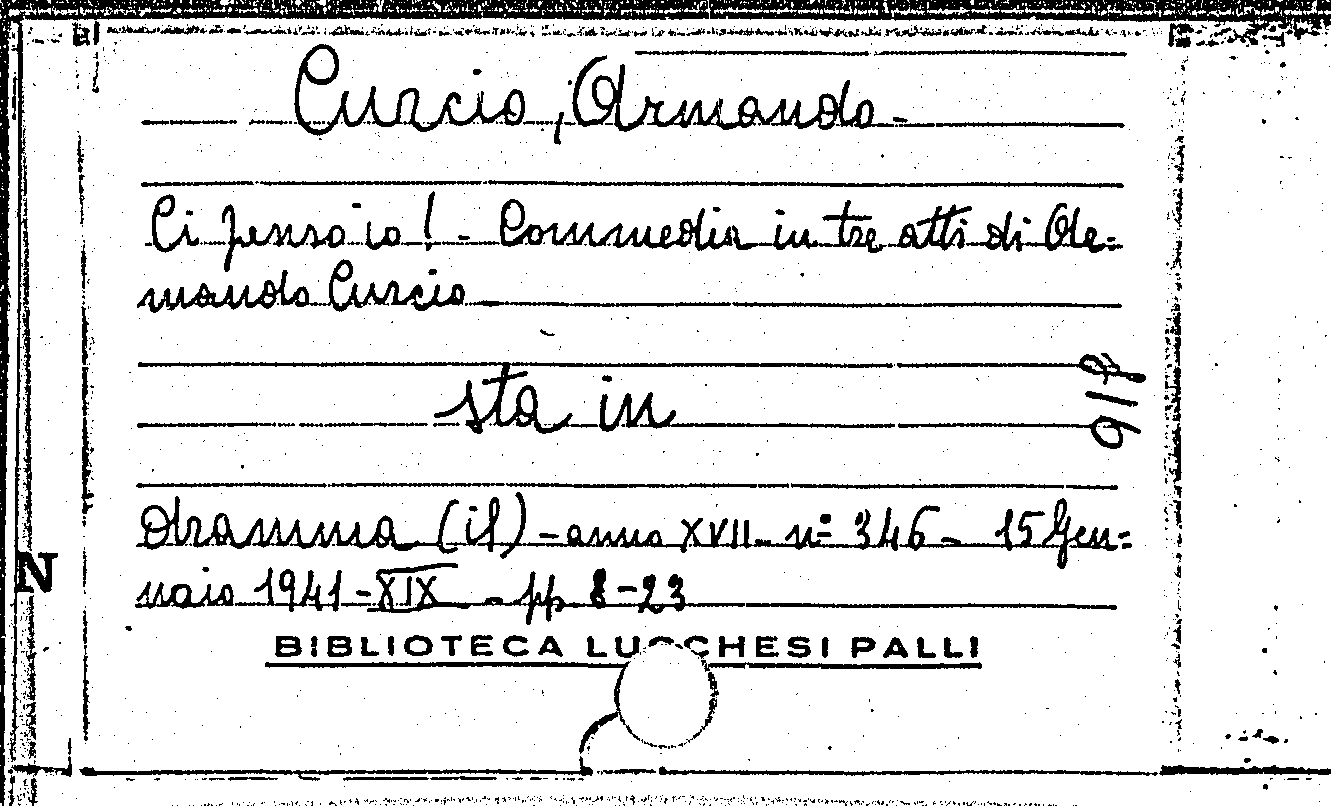 Curcio, Armando -
Ci penso io! - Commedia in tre atti di Ar=
mando Curcio -
sta in
Dramma (il) - anno XVII - nº 346 - 15 Gen=
naio 1941 - XIX - pp 8-23
BIBLIOTECA LUCCHESI PALLI
N